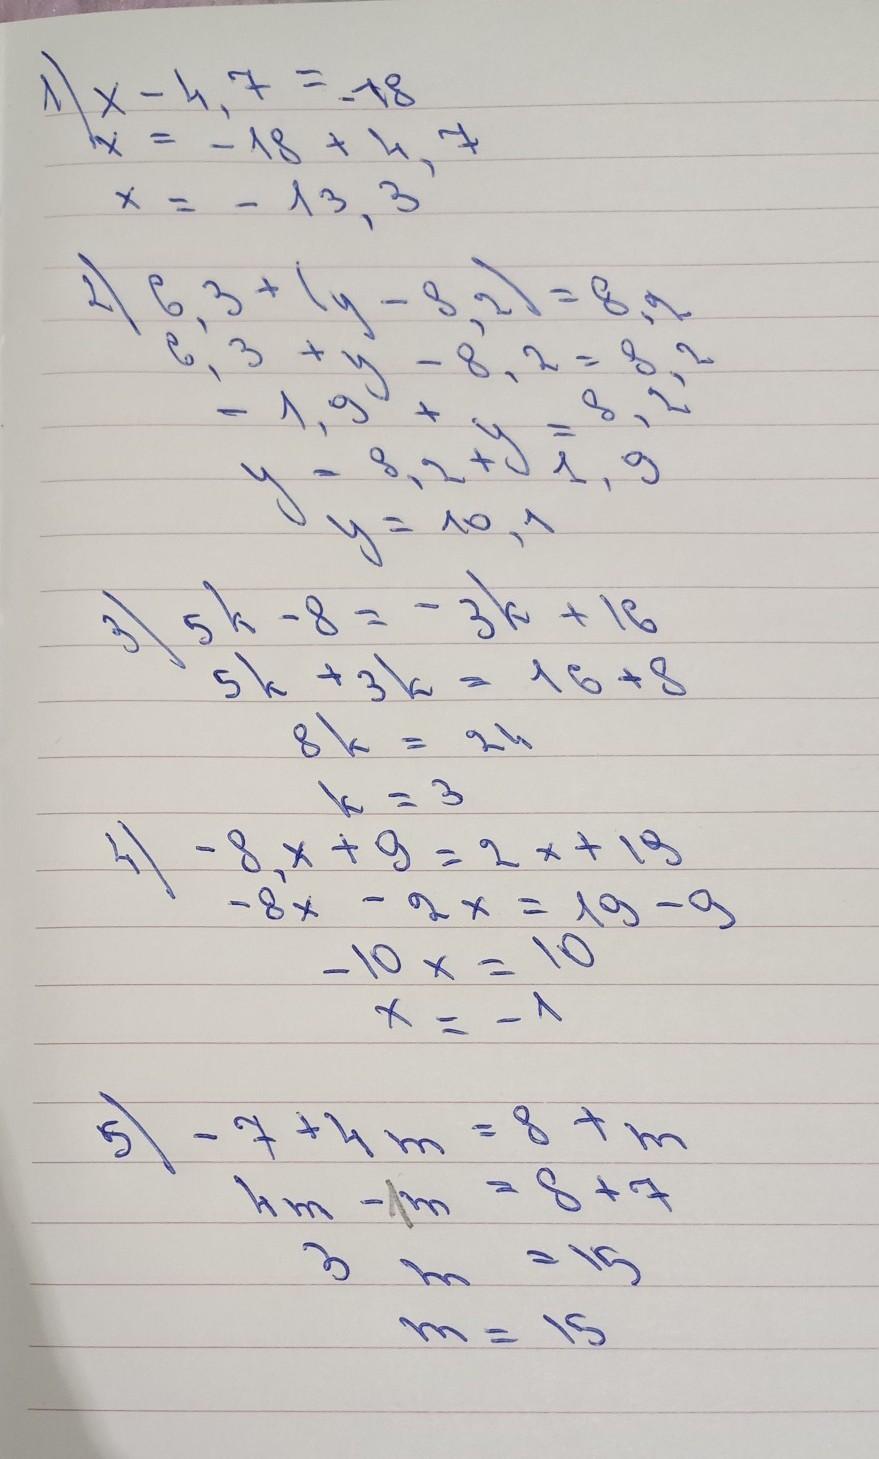 1) x - 4,7 = -18
x = -18 + 4,7
x = - 13,3
2) 6,3 + (y - 8,2) = 8,2
6,3 + y - 8,2 = 8,2
- 1,9 + y = 8,2
y = 8,2 + 1,9
y = 10,1
3) 5k - 8 = - 3k + 16
5k + 3k = 16 + 8
8k = 24
k = 3
4) -8,x + 9 = 2x + 19
-8x - 2x = 19 - 9
-10x = 10
x = -1
5) - 7 + 4m = 8 + m
4m - 1m = 8 + 7
3 m = 15
m = 15